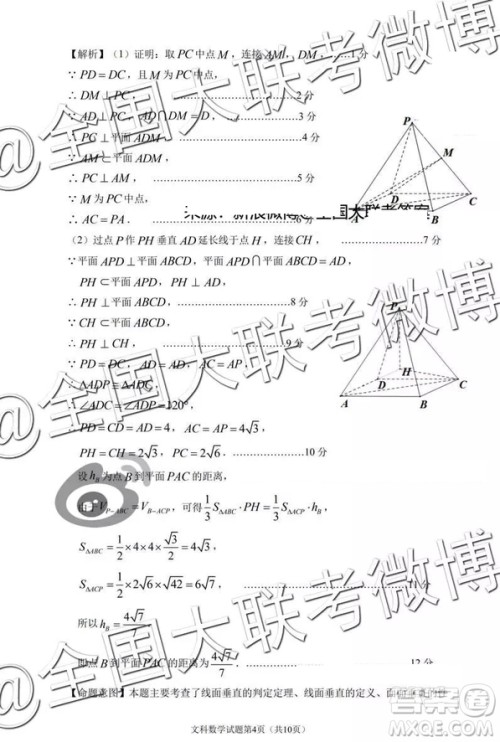 【解析】（1）证明：取PC中点M，连接AM，DM，……1分
∵ PD=DC，且M为PC中点，
∴ DM⊥PC， ………………2分
∵ AD⊥PC， AD⋂DM=D， ………………3分
∴ PC⊥平面ADM， ………………4分
∵ AM⊂平面ADM，
∴ PC⊥AM， ………………5分
∵ M为PC中点，
∴ AC=PA．
P
M
D
C
A
B
（2）过点P作PH垂直AD延长线于点H，连接CH， ………………7分
∵平面APD⊥平面ABCD，平面APD⋂平面ABCD=AD，
PH⊂平面APD，PH⊥AD，
∴ PH⊥平面ABCD， ………………8分
∵ CH⊂平面ABCD，
∴ PH⊥CH， ………………9分
∵ PD=DC，AD=AD，AC=AP，
∴ △ADP≌△ADC，
∴ ∠ADC=∠ADP=120°，
∵ PD=CD=AD=4，AC=AP=4√3，
PH=CH=2√3，PC=2√6， ………………10分
P
H
D
C
A
B
设h_B为点B到平面PAC的距离，
由于V_{P-ABC}=V_{B-ACP}，可得 1/3 S_{△ABC}·PH = 1/3 S_{△ACP}·h_B，
S_{△ABC}= 1/2 ×4×4× √3/2 =4√3，
S_{△ACP}= 1/2 ×2√6×√42=6√7， ………………11分
所以h_B= 4√7/7，
即点B到平面PAC的距离为 4√7/7． ………………12分
【命题意图】本题主要考查了线面垂直的判定定理、线面垂直的定义、面面垂直的性
文科数学试题第4页（共10页）
@全国大联考微博
@全国大联考微博
@全国大联考微博